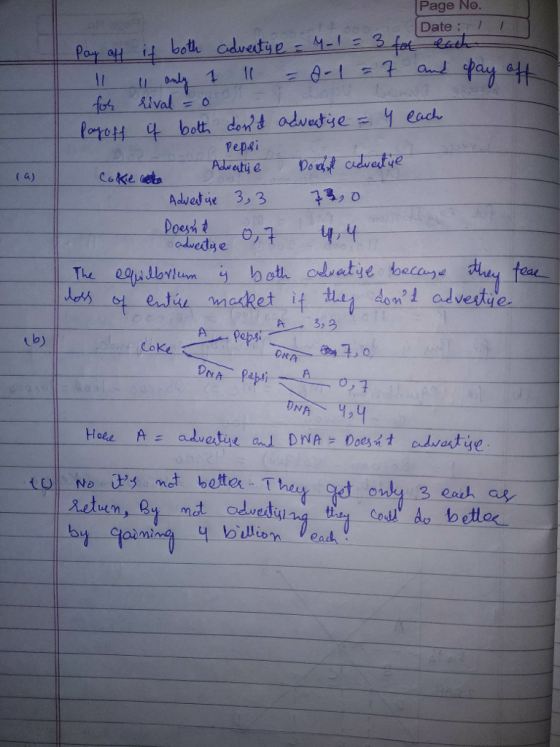 Page No.
Date : / /
Pay off if both advertise = 4-1 = 3 for each
" " only 1 " = 8-1 = 7 and pay off
for rival = 0
Payoff if both don't advertise = 4 each
Pepsi
(a) Coke Advertise Doesn't advertise
Advertise 3,3 7,0
Doesn't
advertise 0,7 4,4
The equilbrium is both advertise because they fear
loss of entire market if they don't advertise.
A 3,3
(b) A Pepsi
Coke DNA 7,0
DNA Pepsi A 0,7
DNA 4,4
Here A = advertise and DNA = Doesn't advertise.
(c) No it's not better. They get only 3 each as
return, By not advertising they could do better
by gaining 4 billion each.